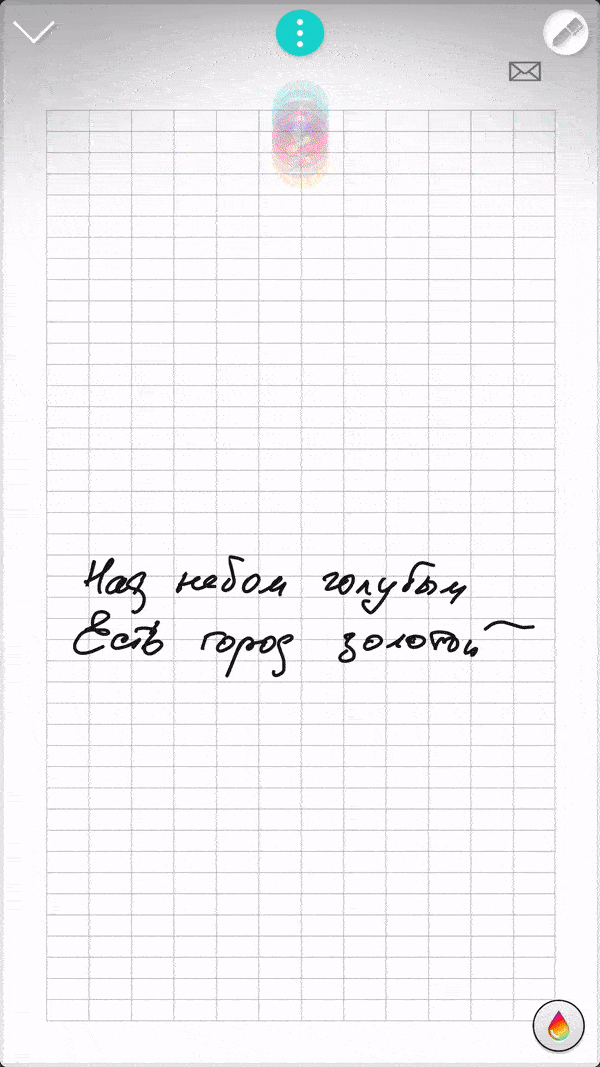 Над небом голубым
Есть город золотой